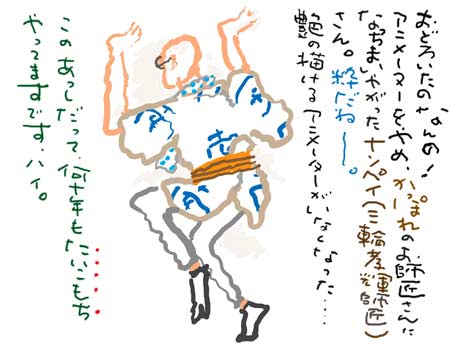 おどろいたのなんの！
アニメーターをやめ、かっぽれのお師匠さんに
なっちまいやがったナンペイ（三輪孝輝師匠）
さん。粋だねー。
艶の描けるアニメーターがいなくなった‥‥
このあっしだって、何十年もたいこもち
やってますです、ハイ。